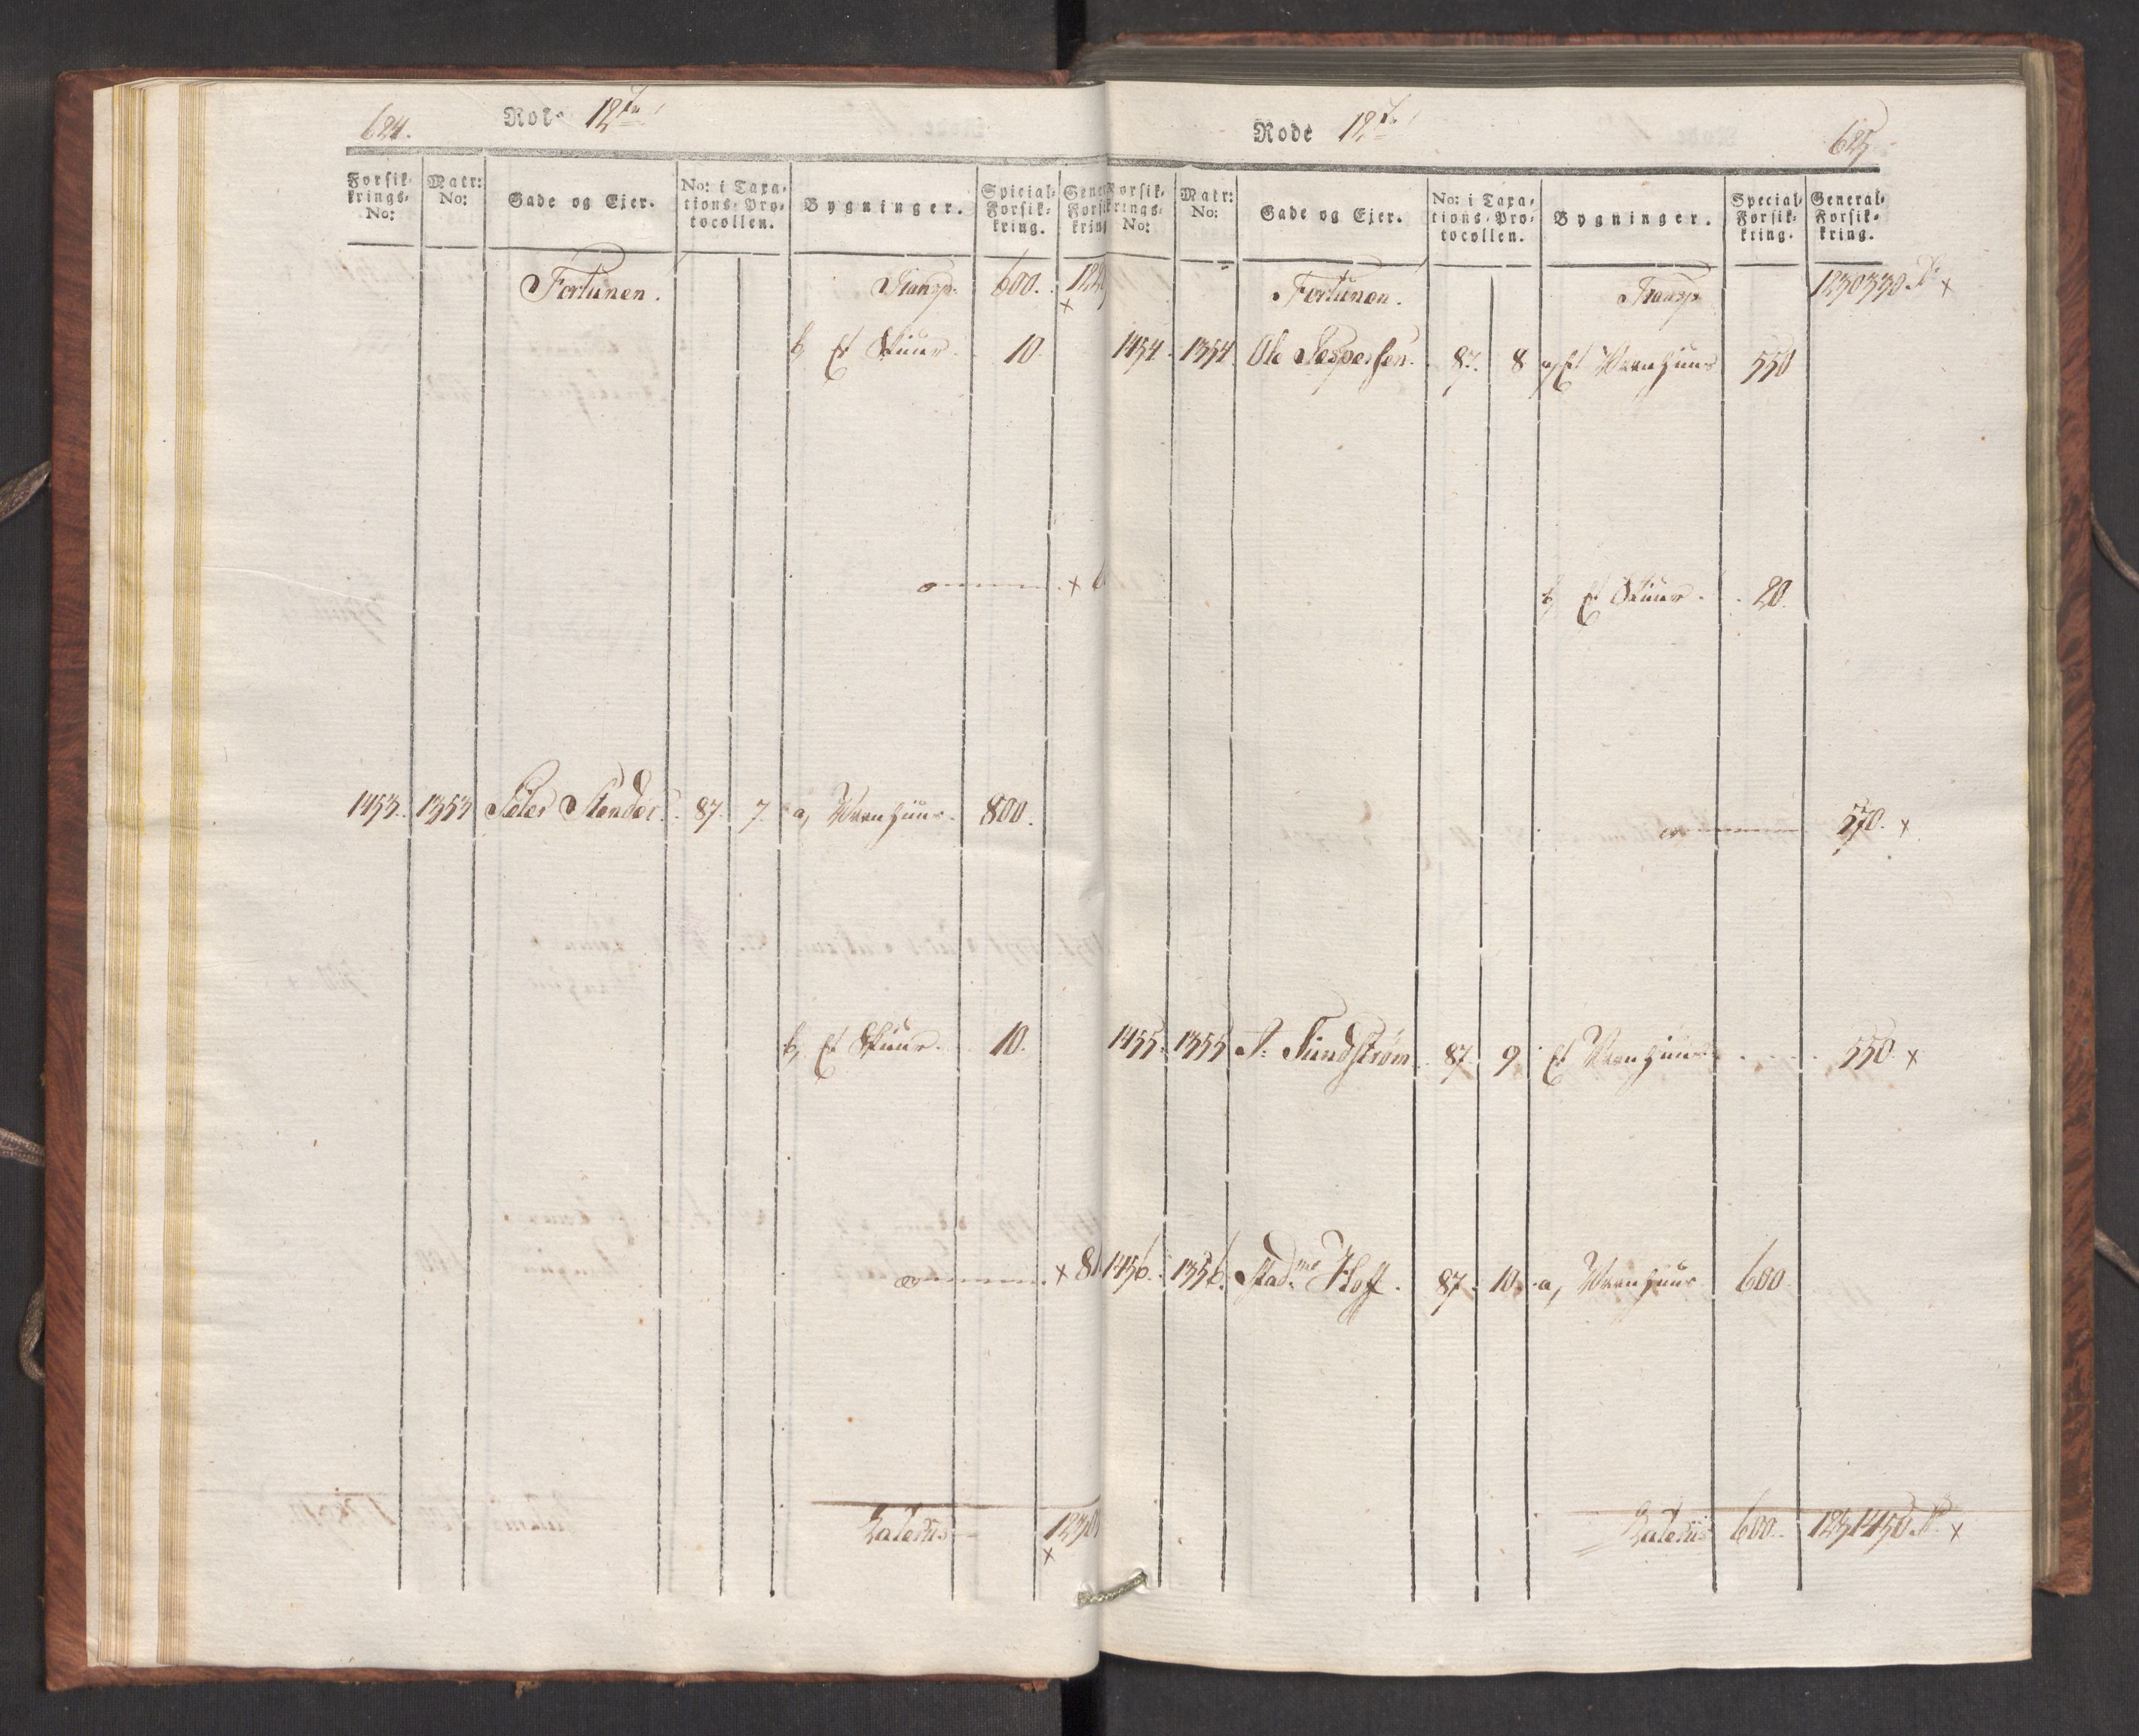 624.
Rode 12te
Forsik-
krings-
No:
Matr:
No:
Gade og Ejer.
No: i Taxa-
tions-Pro-
tocollen.
Bygninger.
Special-
Forsik-
kring.
Fortunen.
Transp.
600.
b, Et Skuur.
10.
1453. 1353 Peter Stender. 87. 7. a, Vaanhuus. 800.
b, Et Skuur. 10.
Laterus
Rode 12te
625
Forsik-
krings-
No:
Matr:
No:
Gade og Ejer.
No: i Taxa-
tions-Pro-
tocollen.
Bygninger.
Special-
Forsik-
kring.
General-
Forsik-
kring.
Fortunen.
Transp.
1230330 x
1454. 1354. Ole Jespersen. 87. 8 a, Et Vaanhuus 550
b, Et Skuur. 20.
570. x
1455. 1355 Sundstrøm 87. 9. Et Vaanhuus 550. x
1456. 1356. Mad.me Hoff. 87. 10. a, Vaanhuus 600.
Laterus 600. 1231450 x